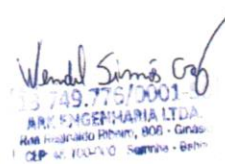 Wendel Simões
749.776/0001-
ARK ENGENHARIA LTDA.
Rua Reginaldo Ribeiro, 808 -
CEP 100-000 Serrinha - Bahia